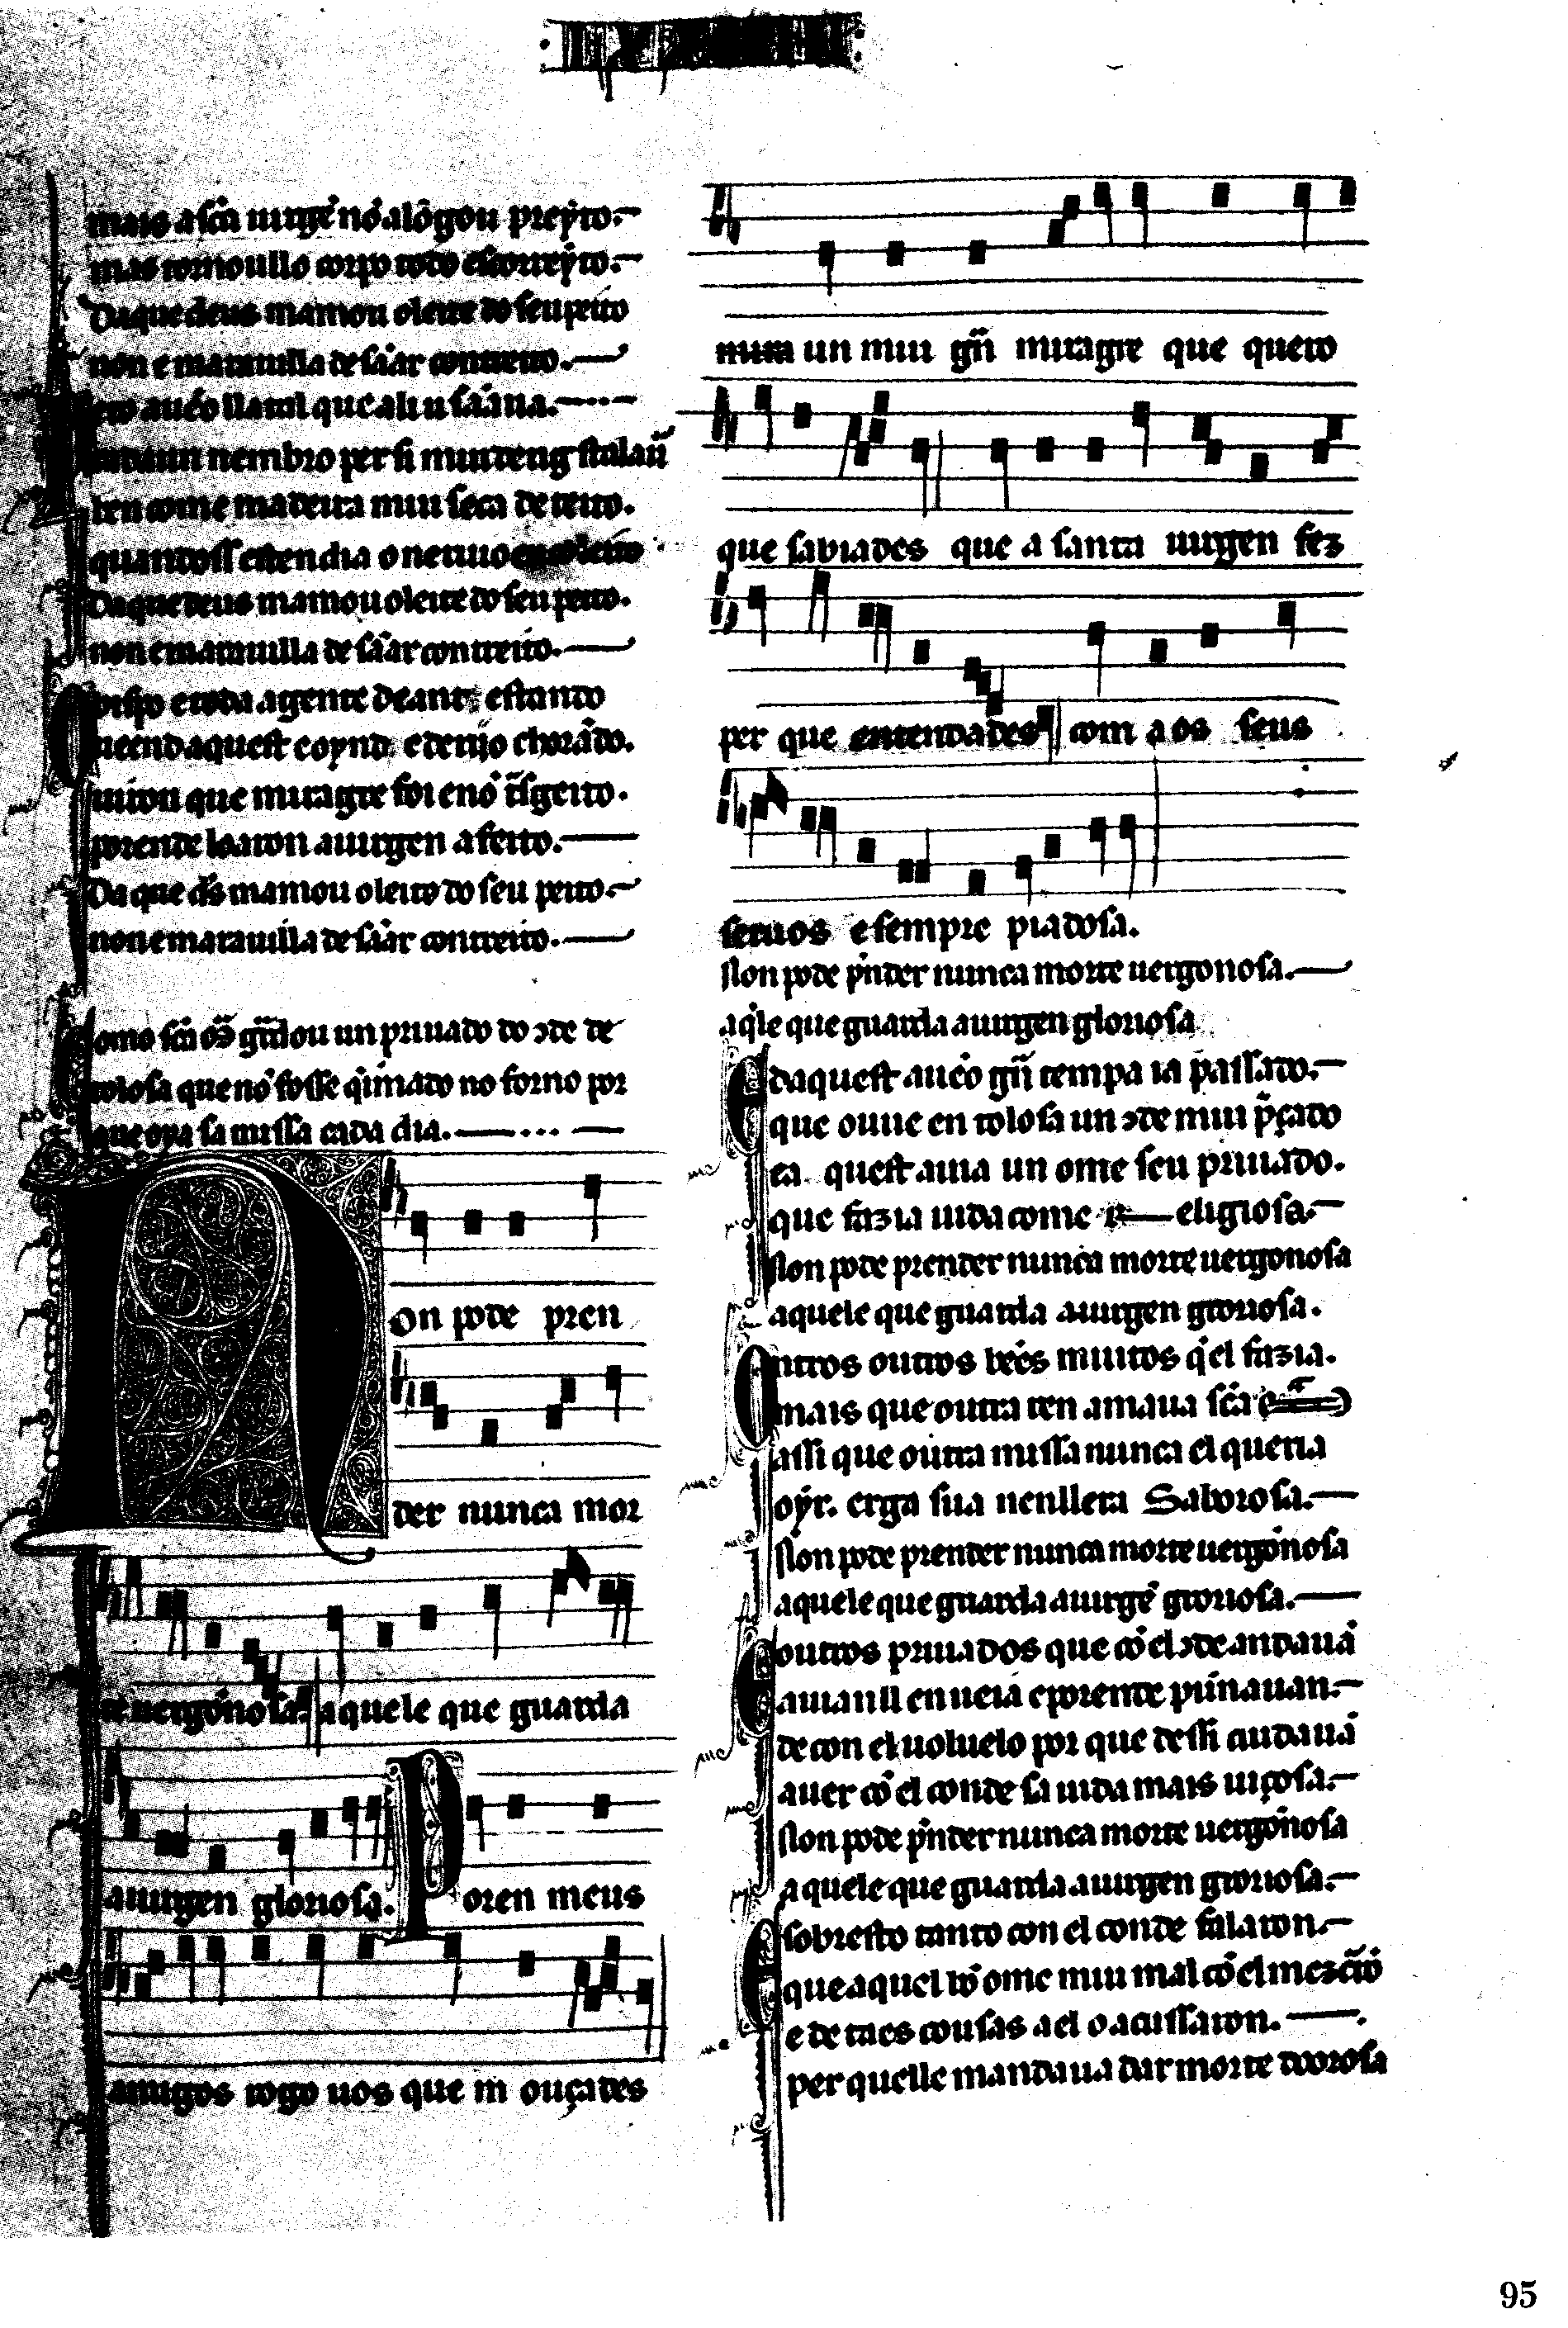 mais a scã uirgẽ nõ alõgou preyto.
mas tornoullo corpo todo escorreyto.
Da que deus mamou o leite do seu peito
non e marauilla de sãar contreito.
que ali u sãaua.
nembro per si mui
ben come madeira mui seca de teito.
quandoss estendia o neruo
Da que deus mamou o leite do seu peito.
non e marauilla de sãar contreito.
bispo e toda a gente deante estando
ueend aquest e oynd e de rijo chorãdo.
uiron que miragre foi e nõ
porende loaron a uirgen a feito.
Da que ds̃ mamou o leito do seu peito.
non e marauilla de sãar contreito.
Como scã guardou un priuado do ↄde de
tolosa que nõ fosse q̃imado no forno por
que oya sa missa cada dia.
Non pode pren
der nunca mor
te uergonnosa. aquele que guarda
a uirgen gloriosa. Poren meus
amigos rogo uos que m ouçades
un mui gñ miragre que quero
que sabiades que a santa uirgen fez
per que entendades com a os seus
seruos e sempre piadosa.
Non pode p̃nder nunca morte uergonosa.
aq̃le que guarda a uirgen gloriosa
E daquest auẽo gñ tempa ia passado.
que ouue en tolosa un ↄde mui p̃çado
ea quest auia un ome seu priuado.
que fazia uida come r eligiosa.
Non pode prender nunca morte uergonosa
aquele que guarda a uirgen groriosa.
Ontros outros bẽes muitos q̃ el fazia.
mais que outra ren amaua scã
assi que outra missa nunca el queria
oyr. erga sua nen llera Saborosa.
Non pode prender nunca morte uergõnosa
aquele que guarda a uirgẽ groriosa.
E outros priuados que cõ el ↄde andauã
auianll enueia e porende punnauan.
de con el uoluelo por que dessi cuidauã
auer cõ el conde sa uida mais uiçosa.
Non pode p̃nder nunca morte uergõnosa
aquele que guarda a uirgen groriosa.
E sobresto tanto con el conde falaron.
que aquel bõ ome mui mal cõ el mezcrarõ
e de taes cousas a el o acussaron.
per quelle mandaua dar morte doorosa
95